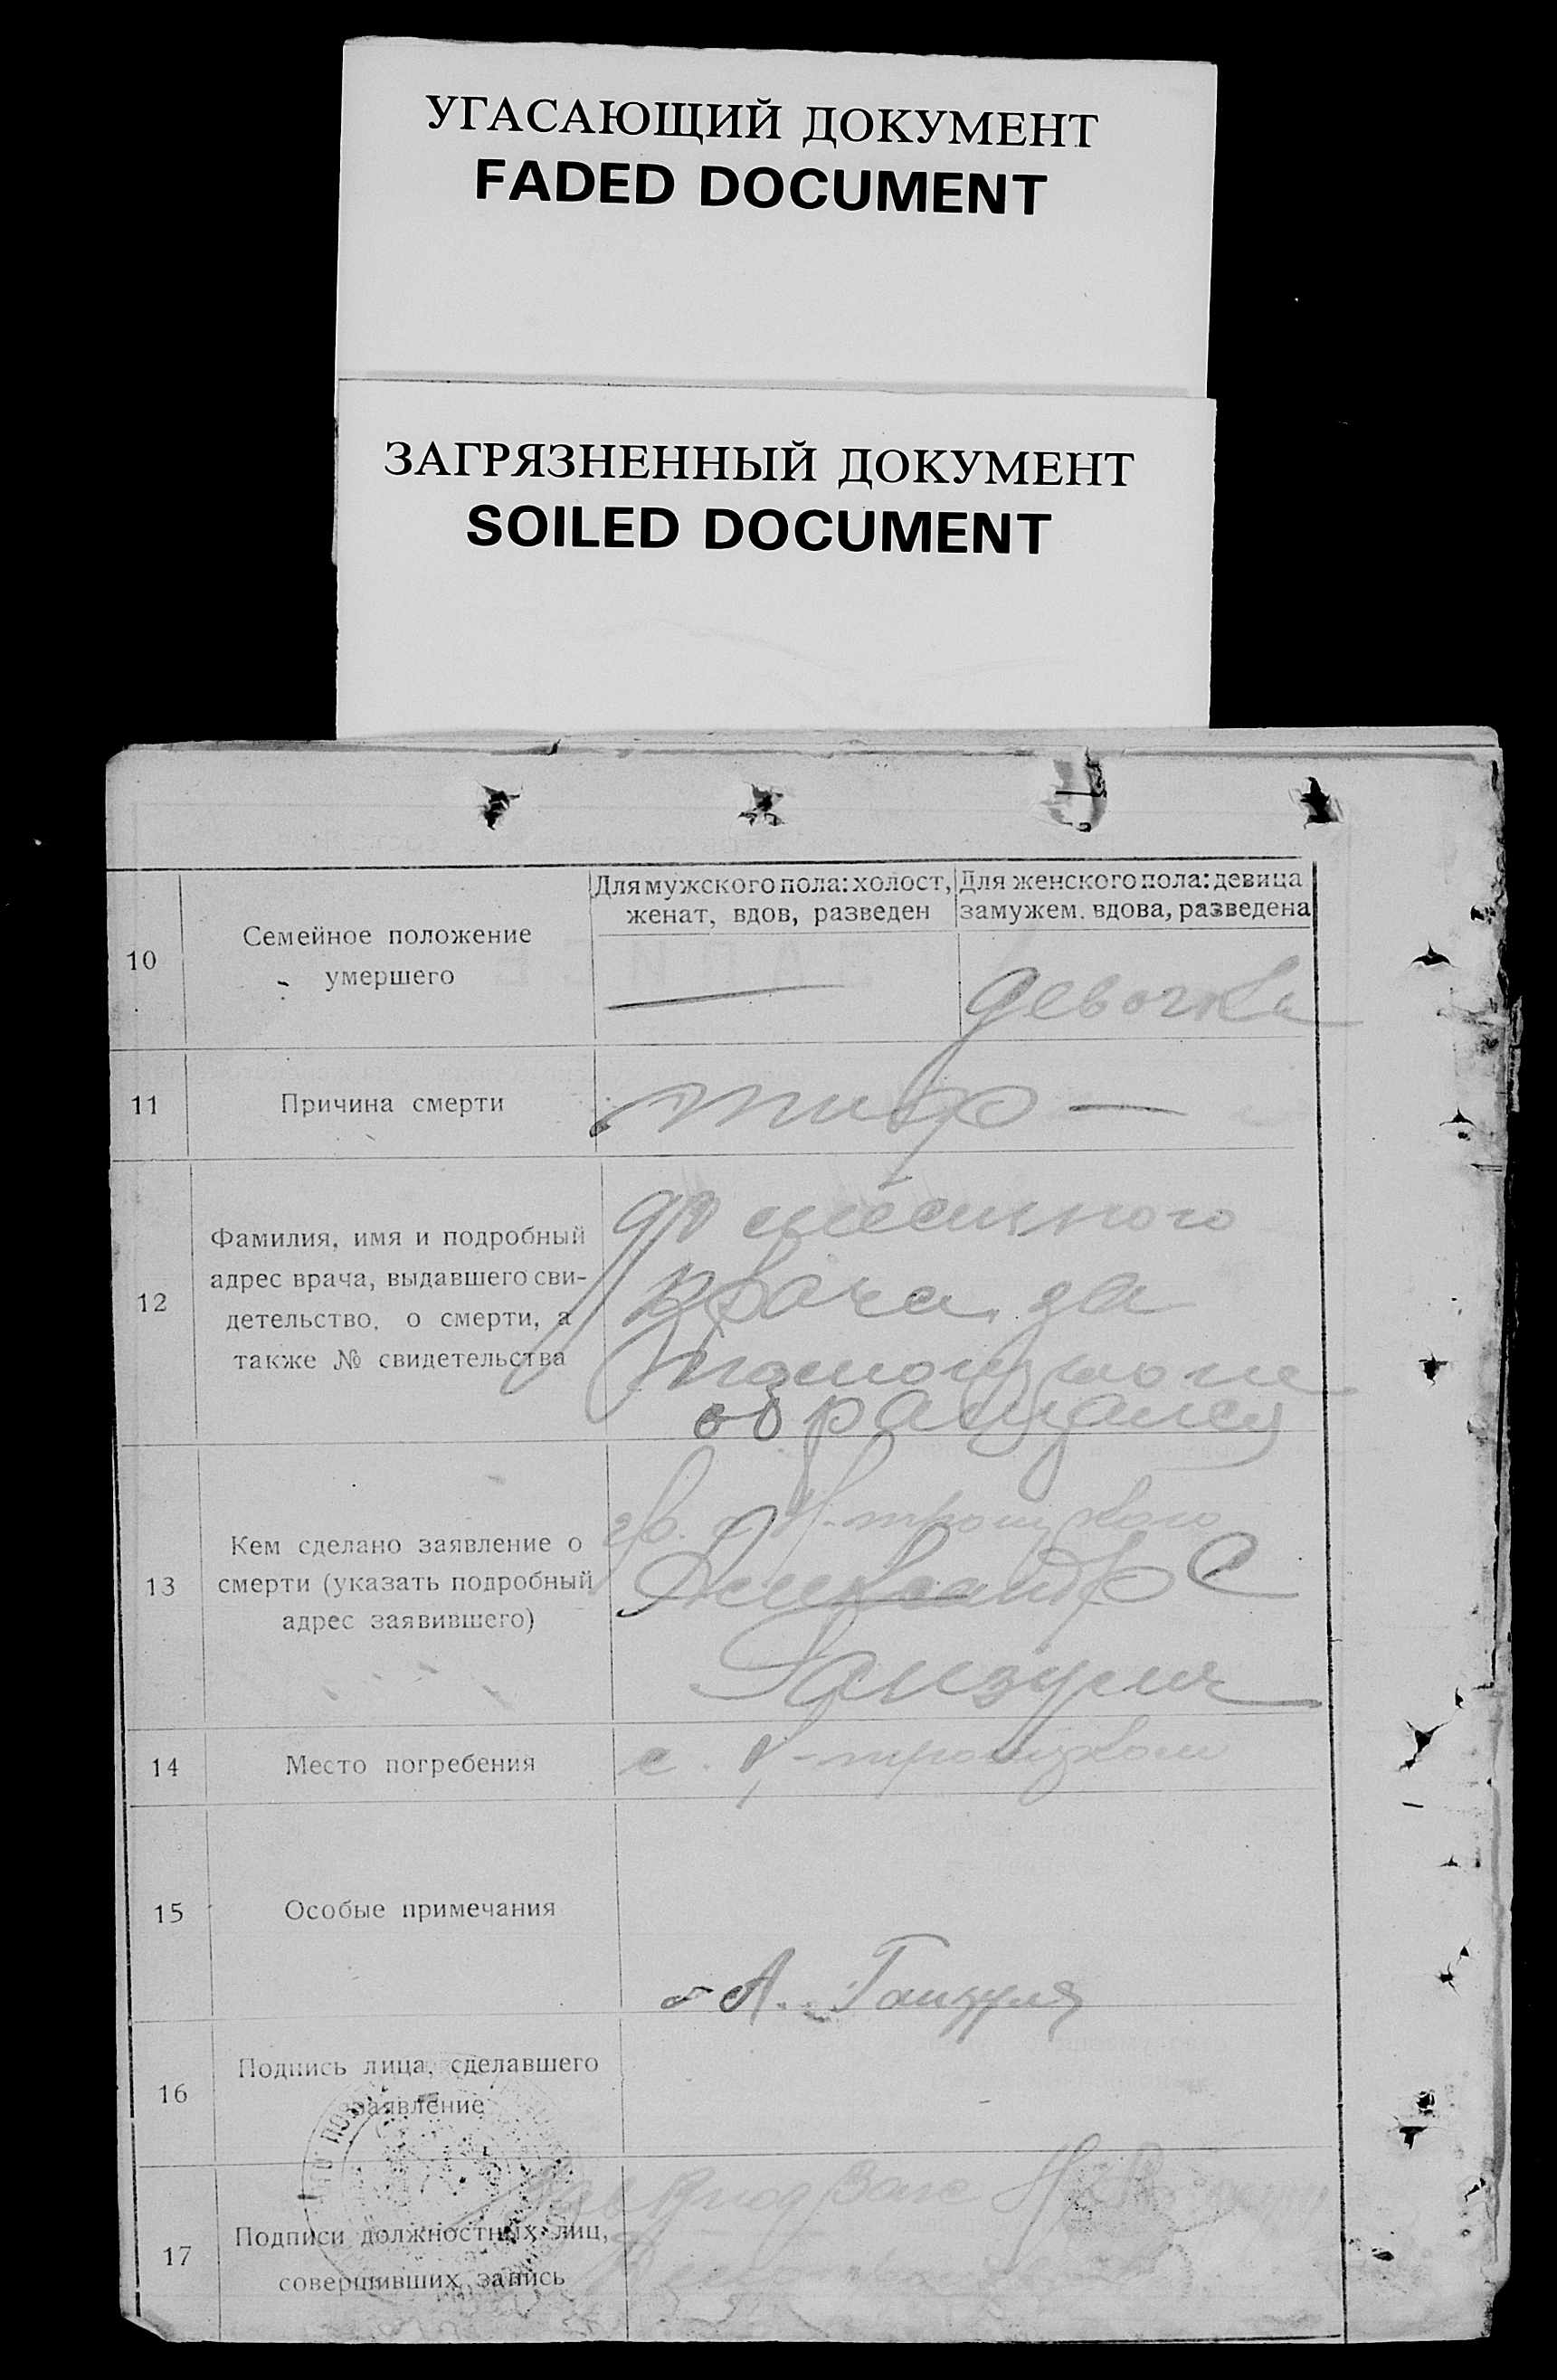 УГАСАЮЩИЙ ДОКУМЕНТ
FADED DOCUMENT
ЗАГРЯЗНЕННЫЙ ДОКУМЕНТ
SOILED DOCUMENT
Для мужского пола: холост,
женат, вдов, разведен
Для женского пола: девица
замужем. вдова, разведена
10
Семейное положение
умершего
девочка
11
Причина смерти
тиф —
12
Фамилия, имя и подробный
адрес врача, выдавшего сви-
детельство, о смерти, а
также № свидетельства
врача, за
помощью не
обращался
13
Кем сделано заявление о
смерти (указать подробный
адрес заявившего)
гр. с.
Александр
14
Место погребения
с.
15
Особые примечания
А.
16
Подпись лица, сделавшего
заявление
17
Подписи должностных лиц,
совершивших запись